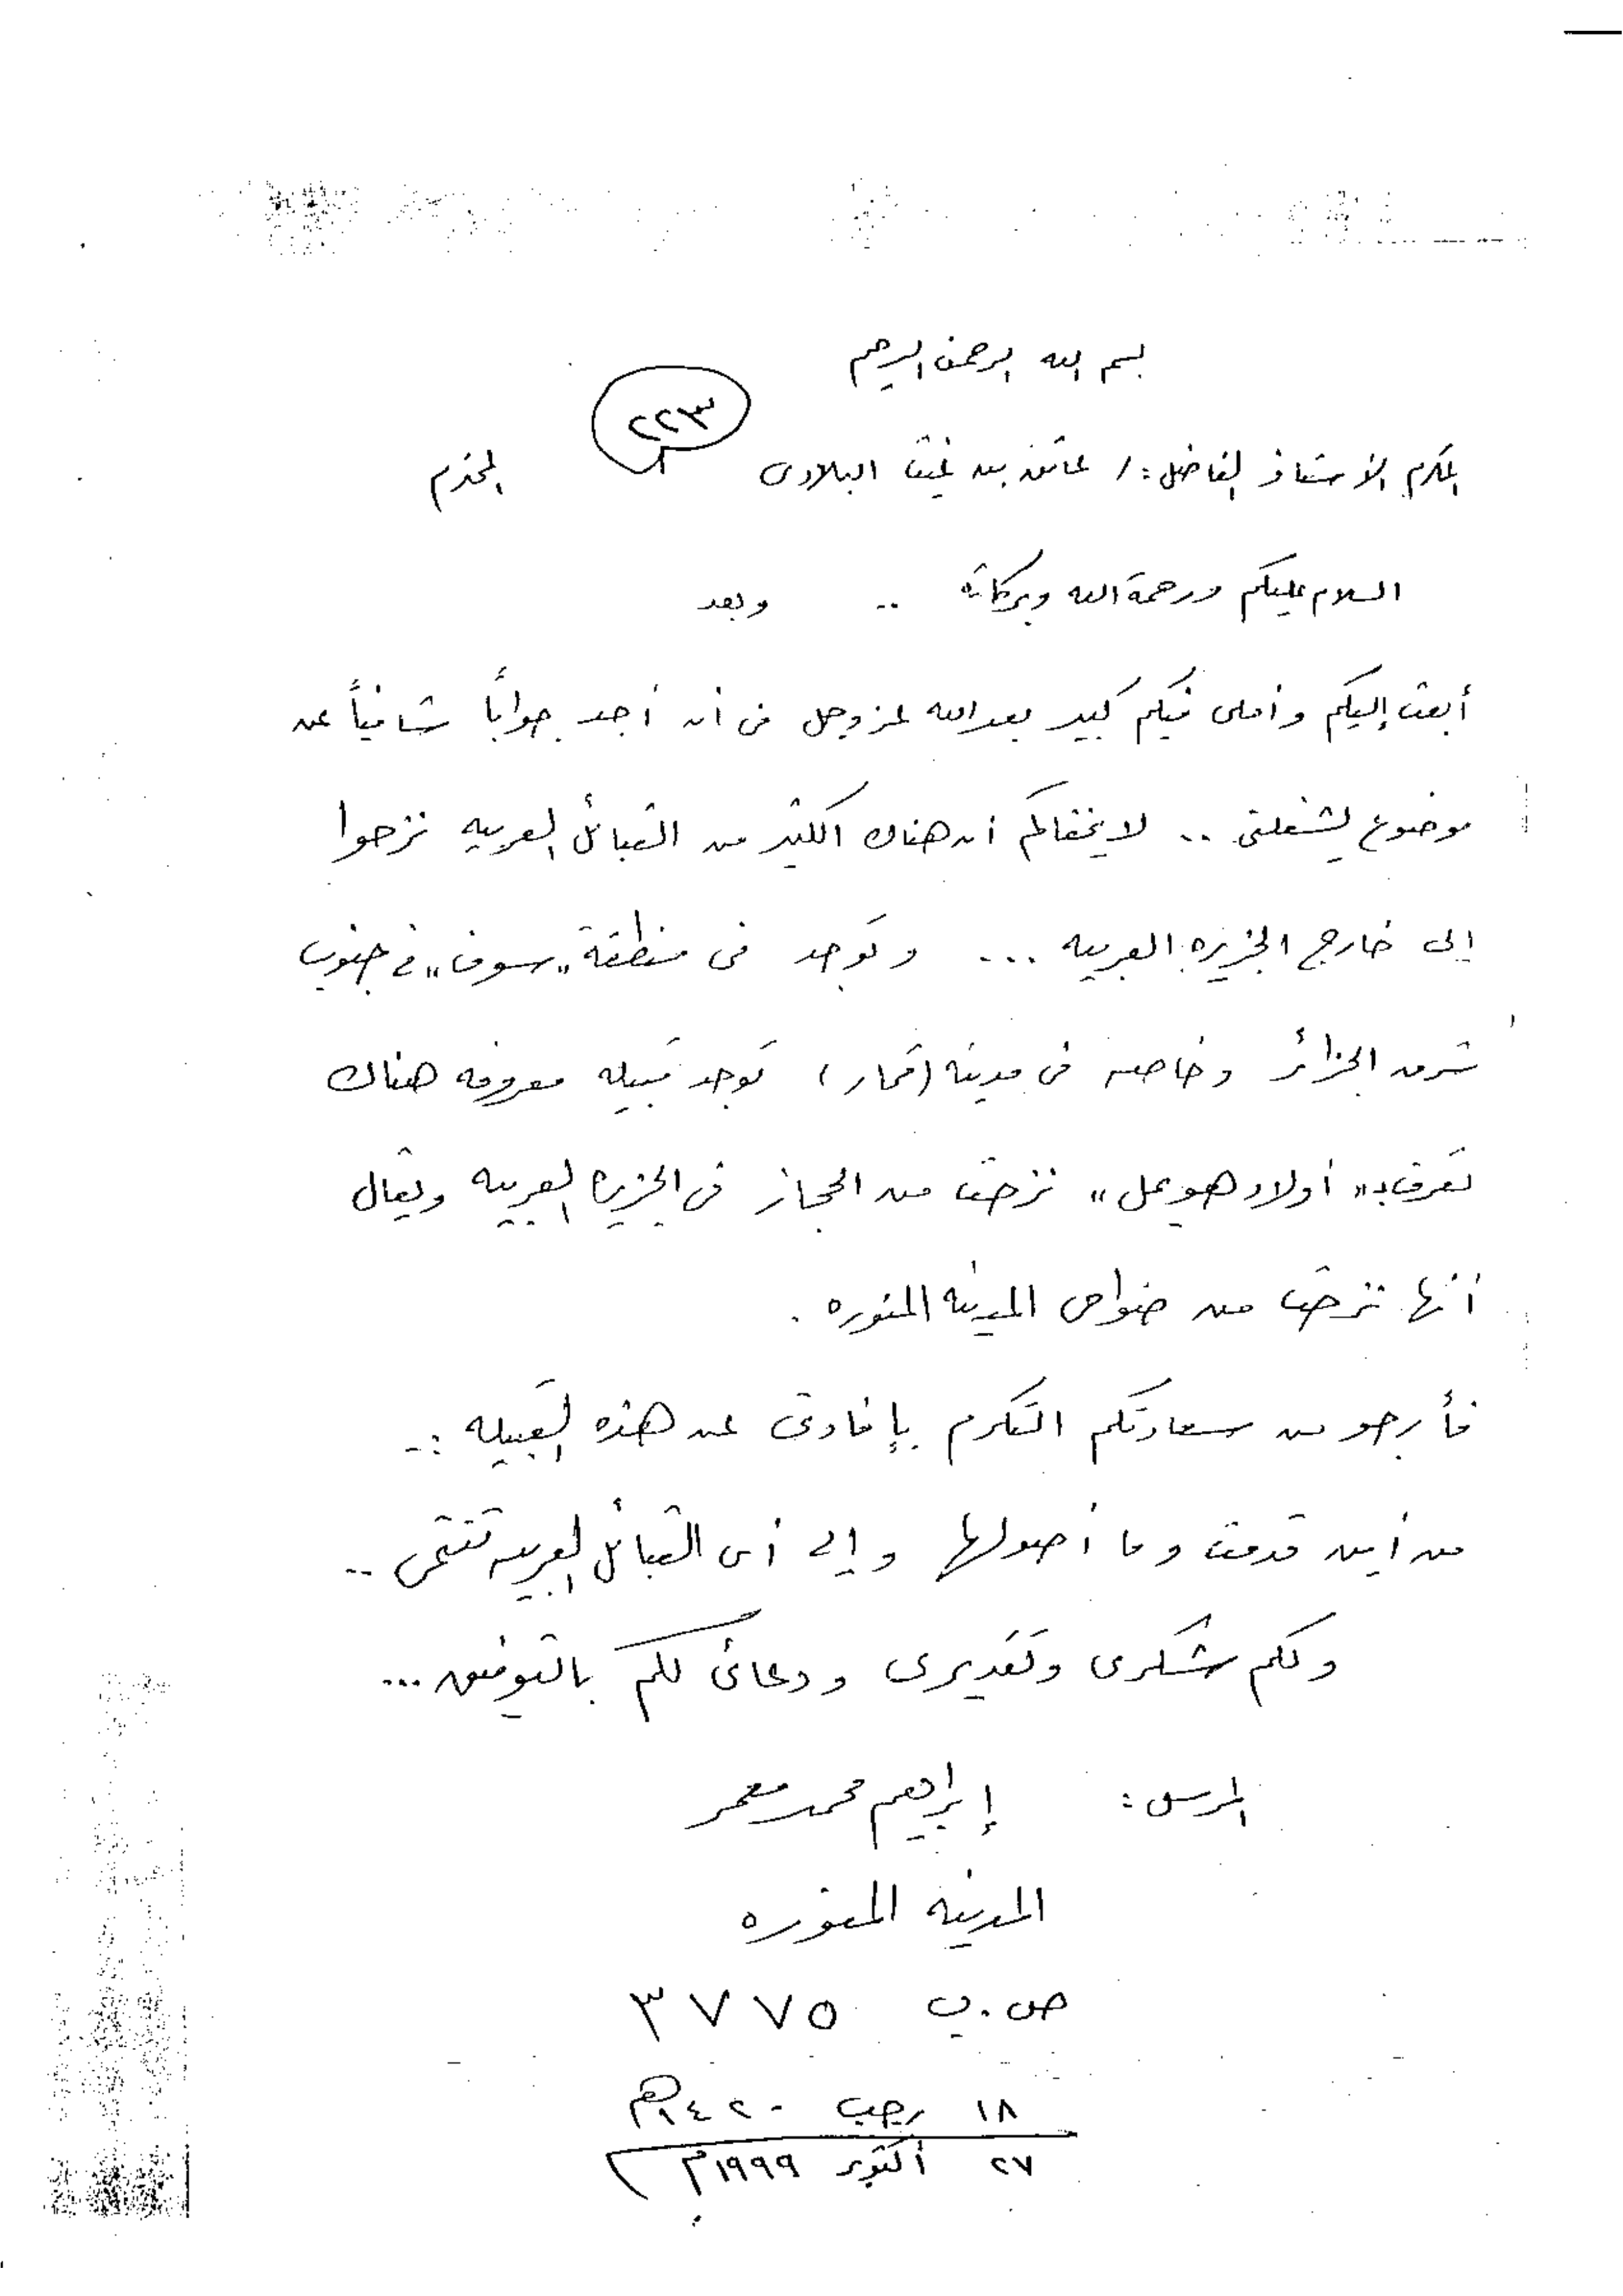 بسم الله الرحمن الرحيم
٢٢٣
المكرم الأستاذ الفاضل :/ عاتق بن غيث البلادى المحترم
السلام عليكم ورحمة الله وبركاته .. وبعد
أبعث إليكم وأملى فيكم كبير بعد الله عز وجل فى أن أجد جواباً شافياً عن
موضوع يشغلنى .. لا يخفاكم أن هناك الكثير من القبائل العربيه نزحوا
إلى خارج الجزيره العربيه ... وتوجد فى منطقة "سوف" فى جنوب
شرق الجزائر وخاصه فى مدينه (قمار) توجد قبيله معروفه هناك
تعرف بـ "أولاد هويمل" نزحت من الحجاز فى الجزيره العربيه ويقال
أنها نزحت من ضواحى المدينه المنوره .
فأرجو من سعادتكم التكرم بإفادتى عن هذه القبيله :-
من أين قدمت وما أصولها وإلى أى القبائل العربيه تنتمى ..
ولكم شكرى وتقديرى ودعائى لكم بالتوفيق ...
المرسل : إبراهيم محمد معمر
المدينه المنوره
ص . ب ٣٧٧٥
١٨ رجب ١٤٢٠هـ
٢٧ أكتوبر ١٩٩٩م